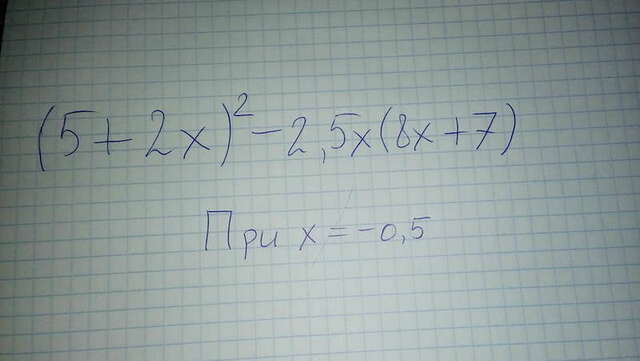 (5+2x)²-2,5x(8x+7)
При x=-0,5